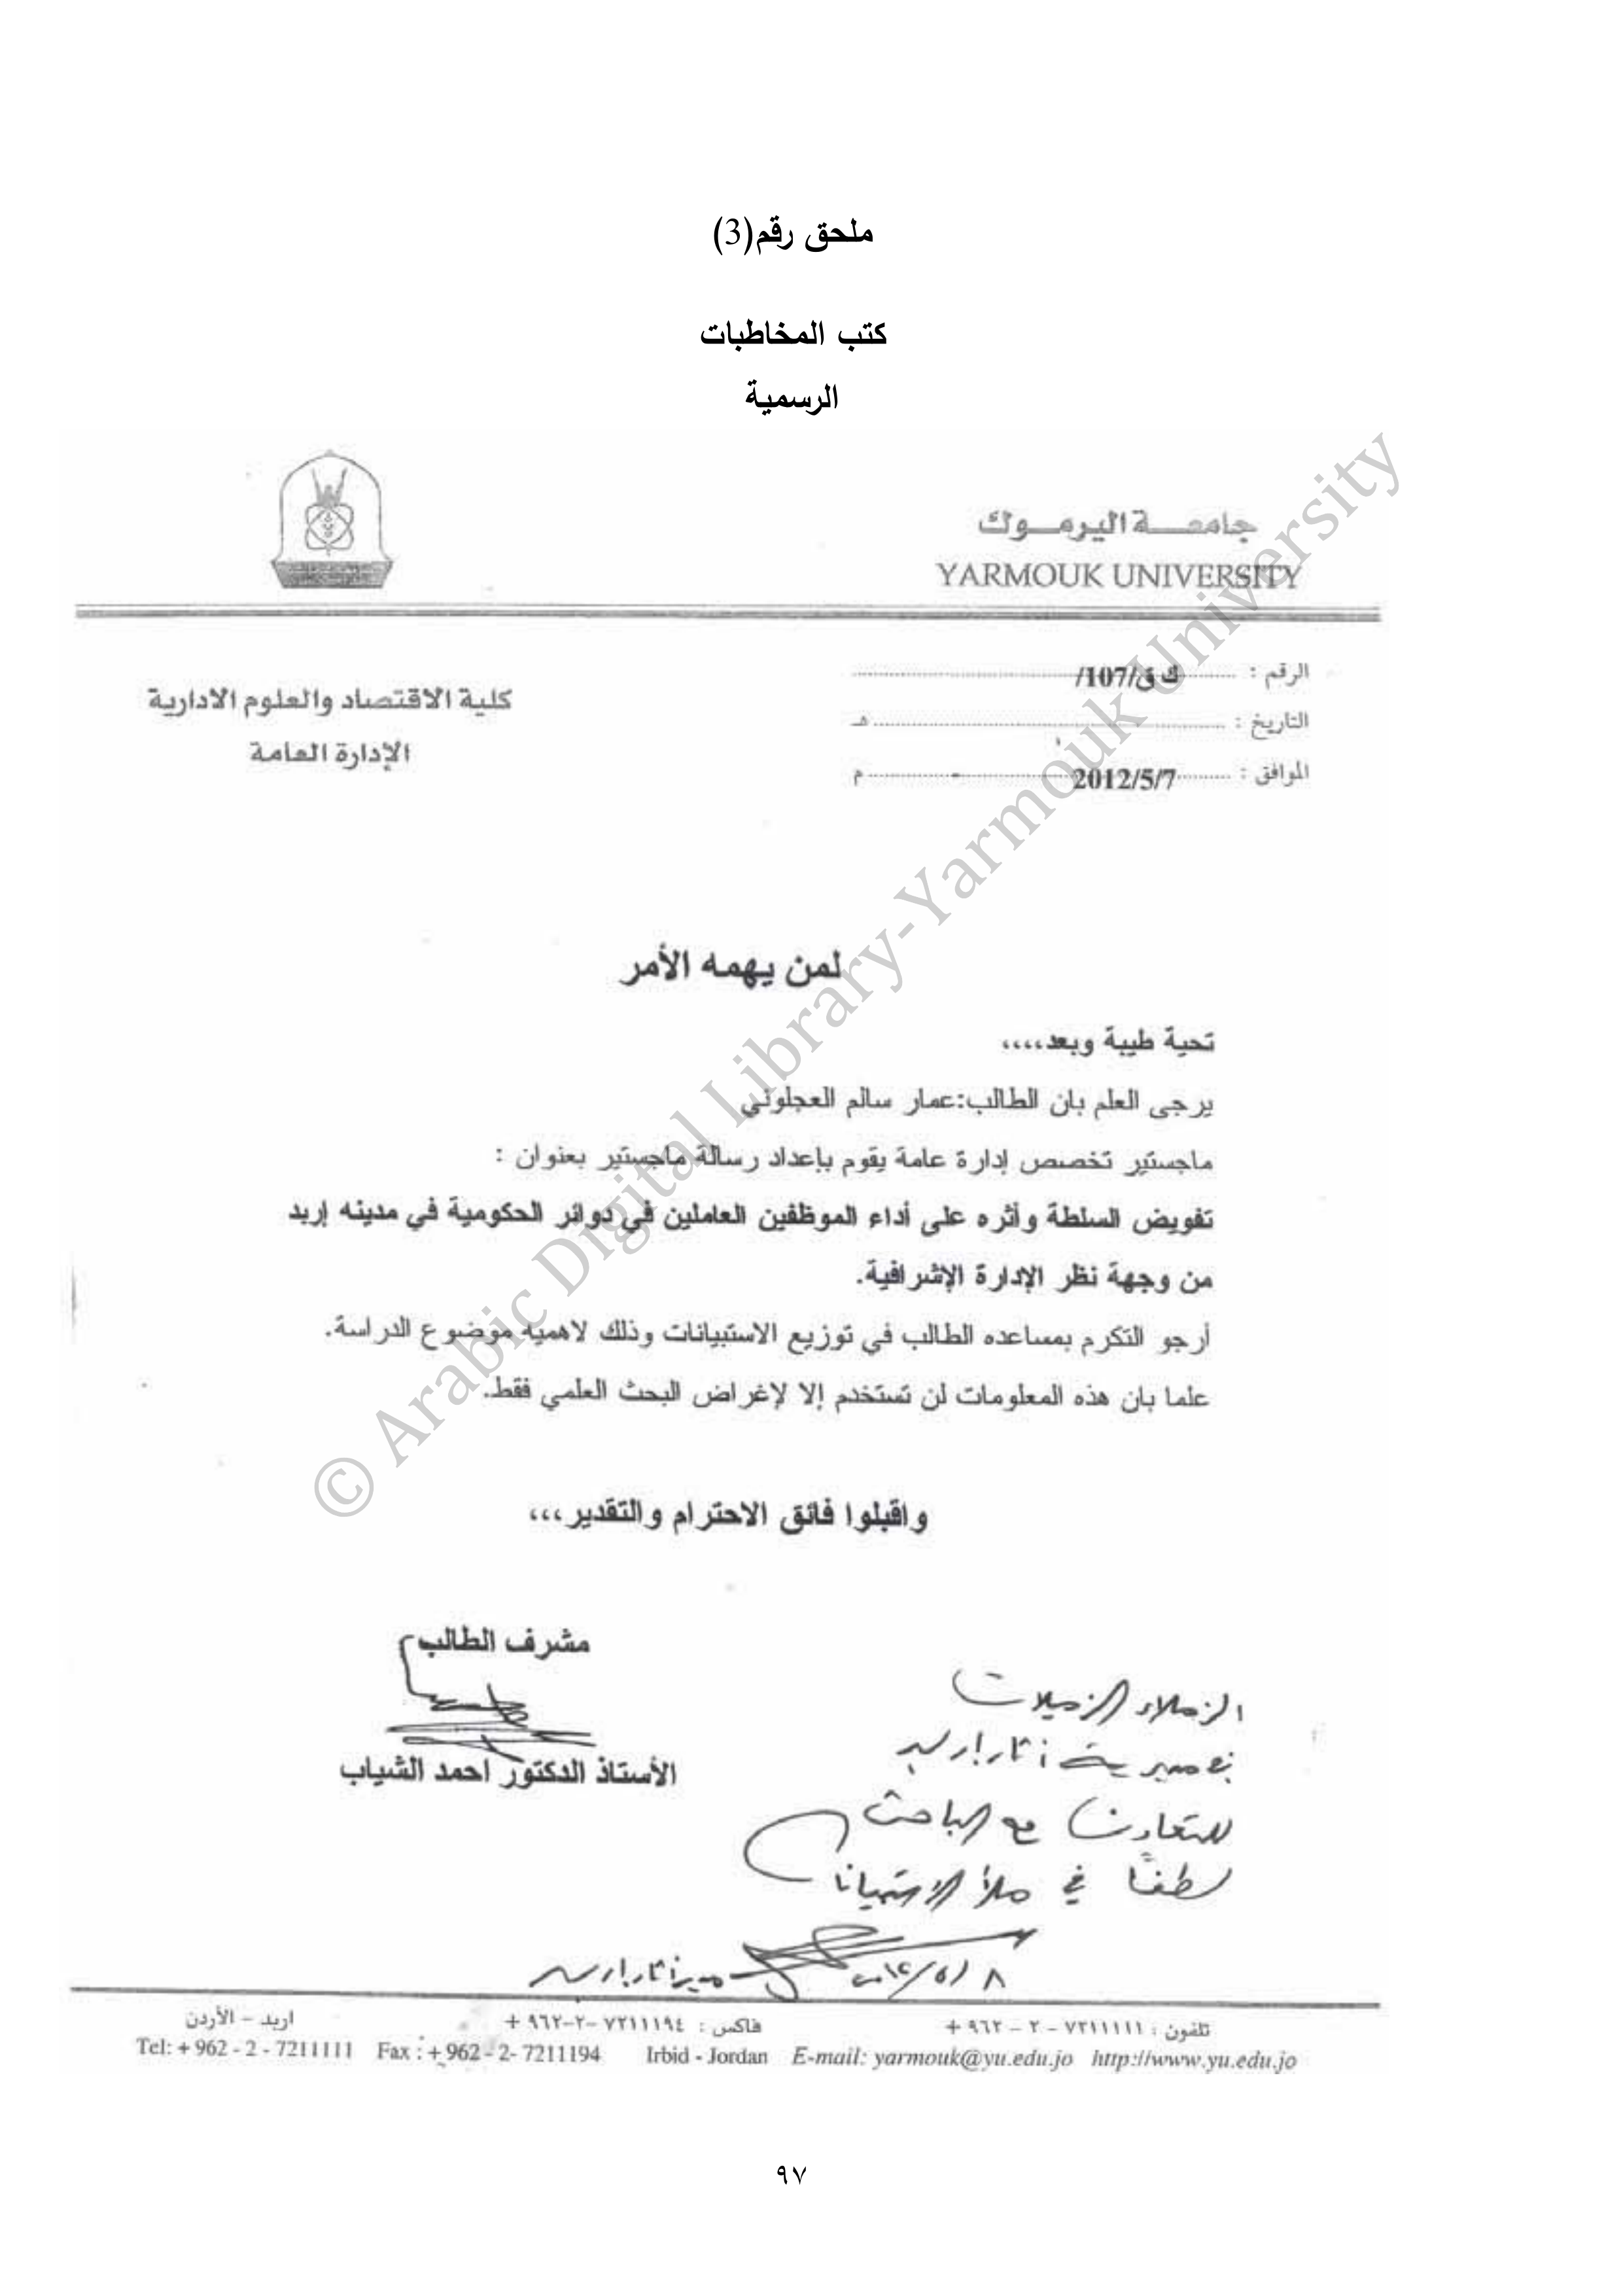 ملحق رقم(3)
كتب المخاطبات
الرسمية
جامعـــة اليرمـــوك
YARMOUK UNIVERSITY
الرقم : ك ق/107/
التاريخ : هـ
الموافق : 2012/5/7 م
كلية الاقتصاد والعلوم الادارية
الإدارة العامة
لمن يهمه الأمر
تحية طيبة وبعد،،،،
يرجى العلم بان الطالب:عمار سالم العجلوني
ماجستير تخصص إدارة عامة يقوم بإعداد رسالة ماجستير بعنوان :
تفويض السلطة وأثره على أداء الموظفين العاملين في دوائر الحكومية في مدينه إربد
من وجهة نظر الإدارة الإشرافية.
أرجو التكرم بمساعده الطالب في توزيع الاستبيانات وذلك لاهميه موضوع الدراسة.
علما بان هذه المعلومات لن تستخدم إلا لإغراض البحث العلمي فقط.
واقبلوا فائق الاحترام والتقدير،،،
مشرف الطالب
الأستاذ الدكتور احمد الشياب
الزملاء الزميلات
في مديرية آثار اربد
للتعاون مع الباحث
لطفاً في ملأ الاستبيانات
٨/٥/٢٠١٢ مدير آثار اربد
تلفون : ٧٢١١١١١ – ٢ – ٩٦٢ + فاكس : ٧٢١١١٩٤ –٢–٩٦٢ + اربد – الأردن
Tel: + 962 - 2 - 7211111 Fax : + 962 - 2- 7211194 Irbid - Jordan E-mail: yarmouk@yu.edu.jo http://www.yu.edu.jo
٩٧
© Arabic Digital Library-Yarmouk University